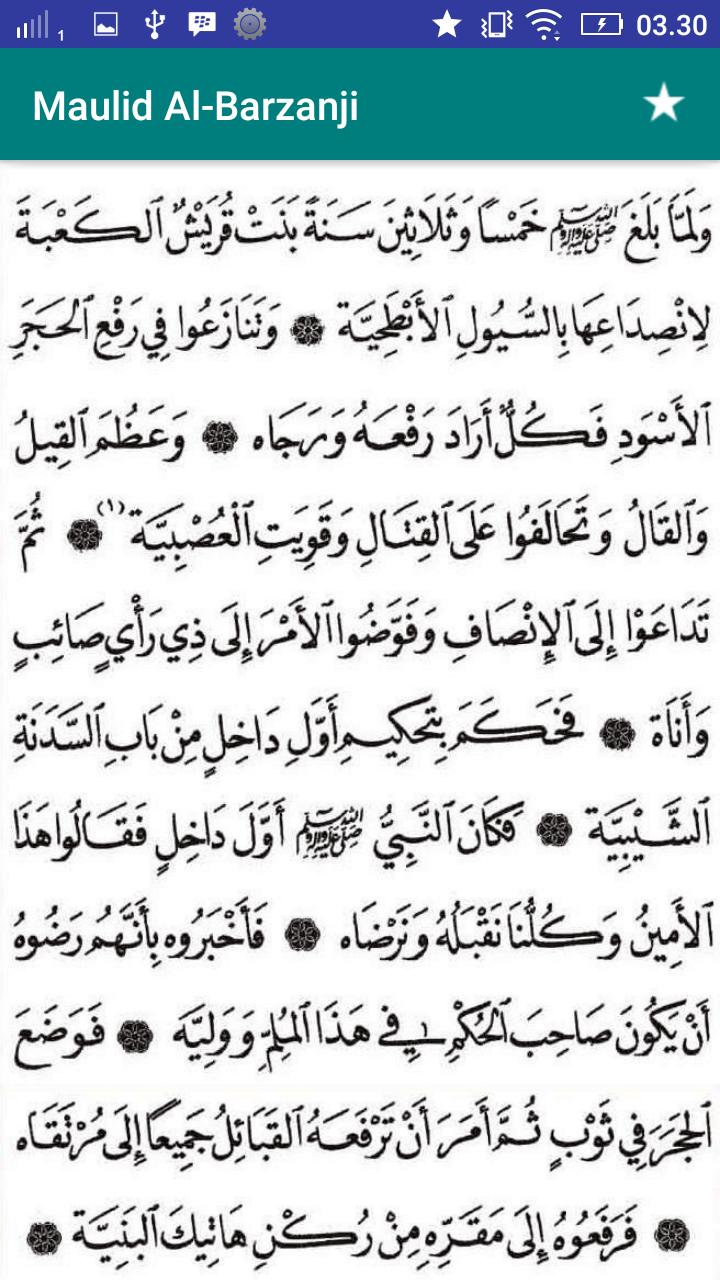 1 03.30
Maulid Al-Barzanji
وَلَمَّا بَلَغَ ﷺ خَمْسًا وَثَلَاثِينَ سَنَةً بَنَتْ قُرَيْشٌ ٱلْكَعْبَةَ
لِانْصِدَاعِهَا بِالسُّيُولِ ٱلْأَبْطَحِيَّة ۞ وَتَنَازَعُوا فِي رَفْعِ ٱلْحَجَرِ
ٱلْأَسْوَدِ فَكُلٌّ أَرَادَ رَفْعَهُ وَرَجَاه ۞ وَعَظُمَ ٱلْقِيلُ
وَٱلْقَالُ وَتَحَالَفُوا عَلَى ٱلْقِتَالِ وَقَوِيَتِ ٱلْعُصْبِيَّة (١) ۞ ثُمَّ
تَدَاعَوْا إِلَى ٱلْإِنْصَافِ وَفَوَّضُوا ٱلْأَمْرَ إِلَى ذِي رَأْيٍ صَائِبٍ
وَأَنَاة ۞ فَحَكَمَ بِتَحْكِيمِ أَوَّلِ دَاخِلٍ مِنْ بَابِ ٱلسَّدَنَةِ
ٱلشَّيْبِيَّة ۞ فَكَانَ ٱلنَّبِيُّ ﷺ أَوَّلَ دَاخِلٍ فَقَالُوا هَذَا
ٱلْأَمِينُ وَكُلُّنَا نَقْبَلُهُ وَنَرْضَاه ۞ فَأَخْبَرُوه بِأَنَّهُمْ رَضُوهُ
أَنْ يَكُونَ صَاحِبَ ٱلْحُكْمِ فِي هَذَا ٱلْمُلِمِّ وَوَلِيَّه ۞ فَوَضَعَ
ٱلْحَجَرَ فِي ثَوْبٍ ثُمَّ أَمَرَ أَنْ تَرْفَعَهُ ٱلْقَبَائِلُ جَمِيعًا إِلَى مُرْتَقَاه
۞ فَرَفَعُوهُ إِلَى مَقَرِّهِ مِنْ رُكْنِ هَاتِيكَ ٱلْبَنِيَّة ۞